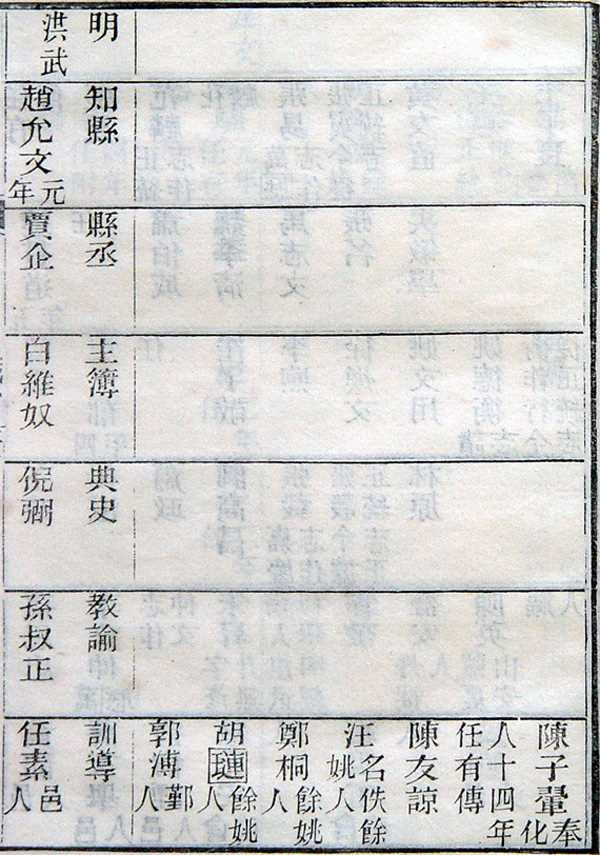 陳子翬奉化
人十四年
任有傳
陳友諒
汪名佚餘
姚人
鄭桐餘姚人
胡璉餘姚人
郭溥鄞人
明
知縣
縣丞
主簿
典史
教諭
訓導
洪武
趙允文元年
賈企
白維奴
倪弼
孫叔正
任素邑人